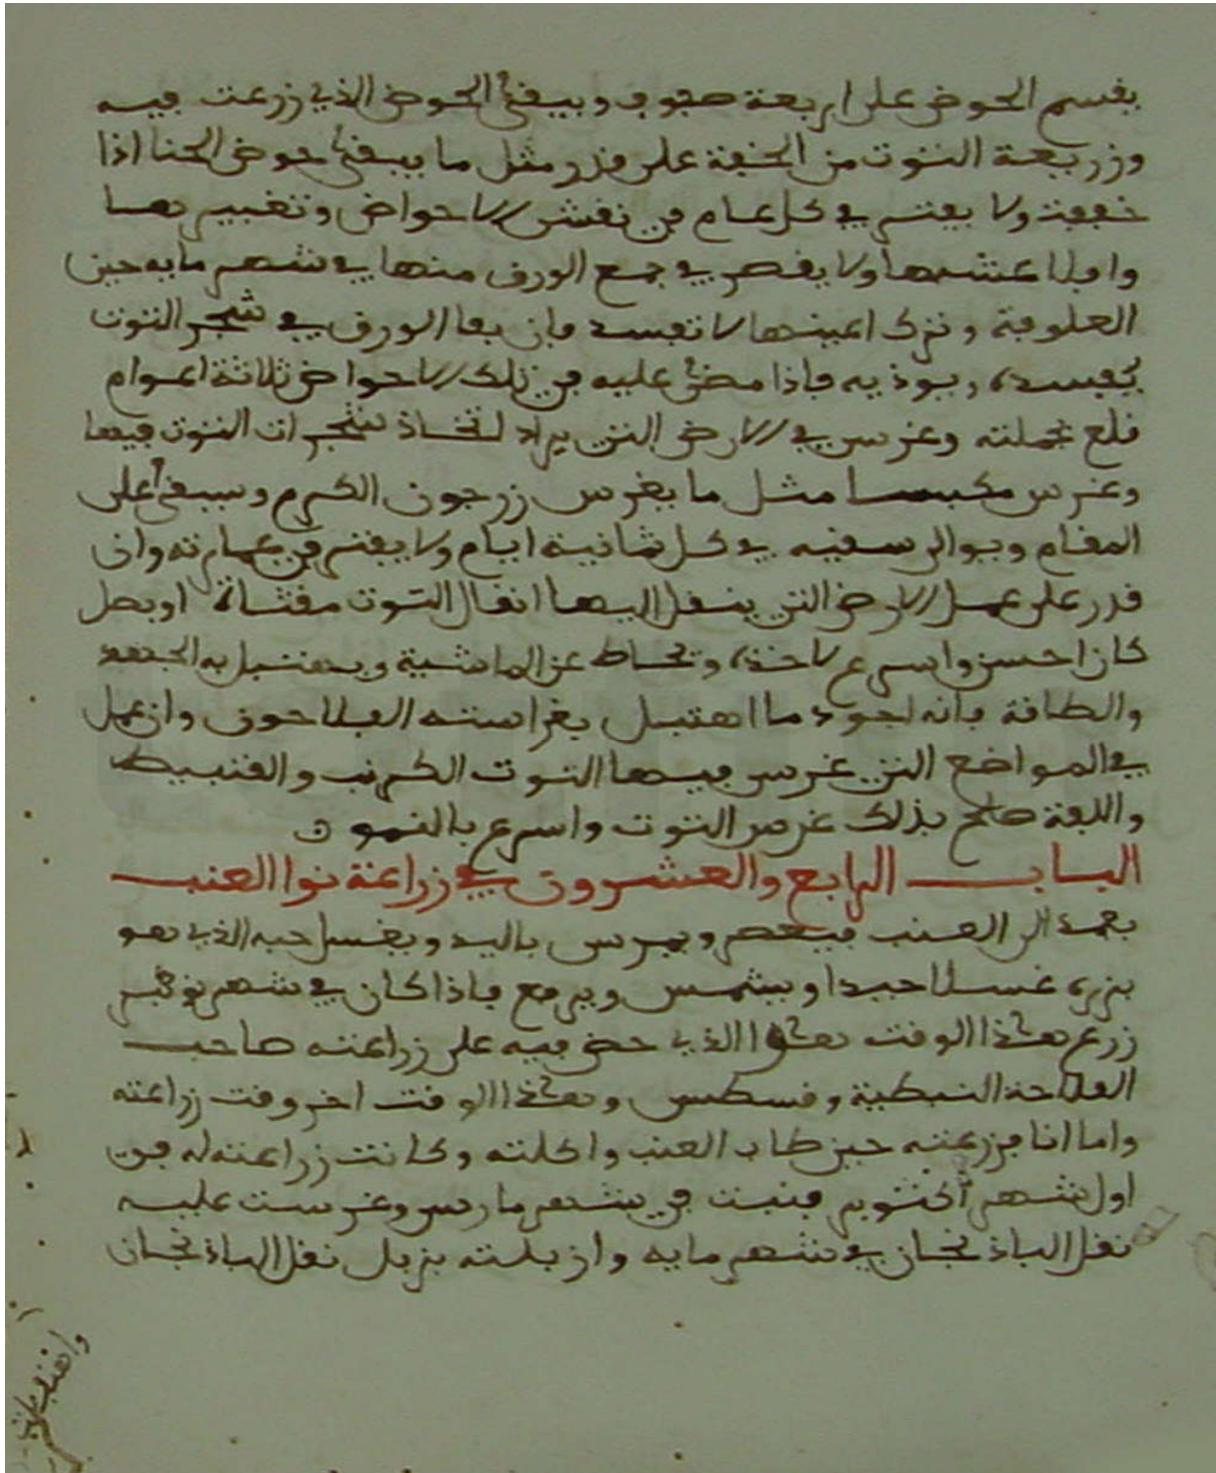 يقسم الحوض على اربعة صفوف ويسقى الحوض الذي زرعت فيه
وزريعة التوت من الخفة على قدر مثل ما يسقى حوض الحنا اذا
خففت ولا يفتر في كل عام من نقش الاحواض وتغييرها
واقلا عشبها ولا يقصر في جمع الورق منها في شهر مايه حين
العلوفة وترك اعينها لا تفسد فان بقا الورق في شجر التوت
يفسده ويوذيه فاذا مضى عليه في تلك الاحواض ثلاثة اعوام
قلع بجملته وغرس في الارض التي يراد لتخاذ شجرات التوت فيها
وغرس مكبسا مثل ما يغرس زرجون الكرم ويسقى على
المقام ويوالى سقيه في كل ثمانية ايام ولا يفتر من عمارته وان
قدر على عمل الارض التي ينقل اليها انقال التوت مقثاة او بصل
كان احسن واسرع لاخذه وتحاط عن الماشية ويهتبل به الجهد
والطاقة فانه اجود ما اهتبل بغراسته الفلاحون وان عمل
في المواضع التي غرس فيها التوت الكرنب والقنبيط
واللفة صلح بذلك غرس التوت واسرع بالنمو
الباب الرابع والعشرون في زراعة نوا العنب
يعمد الى العنب فيعصر ويمرس باليد ويغسل حبه الذي هو
بزره غسلا جيدا ويشمس ويرفع فاذا كان في شهر
زرع هذا الوقت هو الذي حض فيه على زراعته صاحب
الفلاحة النبطية وقسطس وهذا الوقت اخر وقت زراعته
واما انا فزرعته حين طاب العنب واكلته وكانت زراعته له في
اول شهر اكتوبر فنبت في شهر مارس وغرست عليه
نقل الباذنجان في شهر مايه وازبلته بزبل نقل الباذنجان